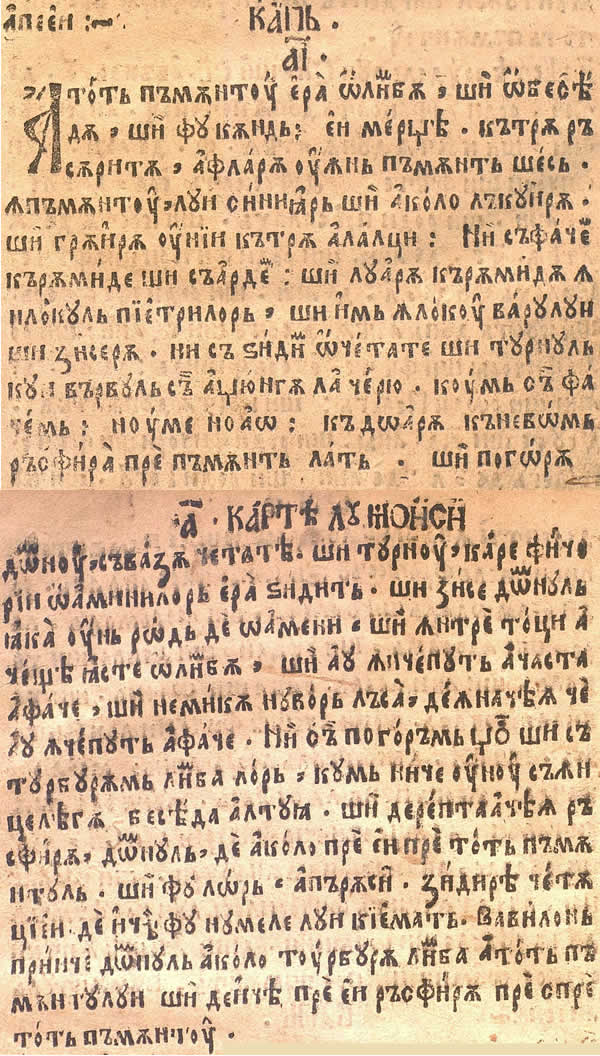 а҆песєи :~ КА́ПЬ .
а҃і .
А то́ть пъмѫнтоу҆ є҆ра̀ ѡ҆ли́мбѫ , шѝ ѡ҆бесѣ́
дѫ , шѝ фꙋ кѫндь ; є҆и ме́рџѣ . кътрѫ ръ
съритѫ , а҆фларѫ оу҆ѫнь пъмѫнть ше́сь .
ѫпъмѫнтоу҆ , лꙋи сѝниꙗ҆рь шѝ а҆ко́ло лъкꙋи́рѫ .
шѝ грѫи́рѫ оу҆нїи кътрѫ а҆ла́лци : Нѝ съфа́чем
кърѫми́де ши съа́рдем : шѝ лꙋа́рѫ кърѫми́дѫ ѫ
нло́кꙋль пїе́трилорь , шѝ и҆мь ѫло́коу҆ ва́рꙋлꙋи
шѝ зи́серѫ . ни съ ѕиди́м ѡ҆чета́те шѝ тꙋрнꙋль
кꙋи въ́рвꙋль съ̀ а҆џю́нгѫ ла че́рю . коу́мь съ̀ фа́
че́мь ; ноу́ме ноаѡ : къдѡа́рѫ къневѡ́мь
ръсфира̀ прѐ пъмѫ́нть ла́ть . шѝ пого́рѫ
а҃ . КА́РТѢ ЛꙊ МОИ҆СИ
дѡмноу҆ , съва́зѫ чета́тѣ . шѝ тꙋрноу҆ , ка́ре фи́чо
рїи ѡа́минилорь є҆ра̀ ѕиди́ть . шѝ зи́се дѡмнꙋль
ꙗ҆ка̀ оу҆нь рѡ́дь дѐ ѡа́мени . шѝ ѫнтрѐ то́ци а҆
че́щѣ ꙗ҆сте ѡли́мбѫ , шѝ а҆ꙋ ѫнче́пꙋть а҆ча́ста
а҆фа́че , шѝ неми́кѫ нꙋво́рь лъса̀ , де́ѫначѣ́ѫ че
а҆ꙋ ѫче́пꙋть а҆фа́че . Нѝ съ̀ пого́ръмь џо шѝ съ
тꙋрбꙋрѫ́мь ли́мба ло́рь , кꙋмь ни́че оу҆ноу҆ съѫн
целѣ́гѫ бесѣ́да а҆лтꙋꙗ . шѝ дере́птаачѣ́ѫ ръ
сфи́рѫ , дѡмнꙋль , дѐ а҆ко́ло прѐ є҆и прѐ то́ть пъмѫ
нтꙋль . шѝ фꙋ лѡ́рь а҆пъръсѝ . зи́дирѣ че́тѫ
цїеи . дѐ и҆чѣ́ фꙋ нꙋмеле лꙋи кїема́ть . Вавило́нь
при́нче дѡмнꙋль а҆ко́ло тоу́рбꙋрѫ ли́мба а҆то́ть пъ
мѫ́нтꙋлꙋи шѝ деи́чѣ прѐ є҆и ръсфи́рѫ прѐ спрѐ
то́ть пъмѫ́нтоу҆ .